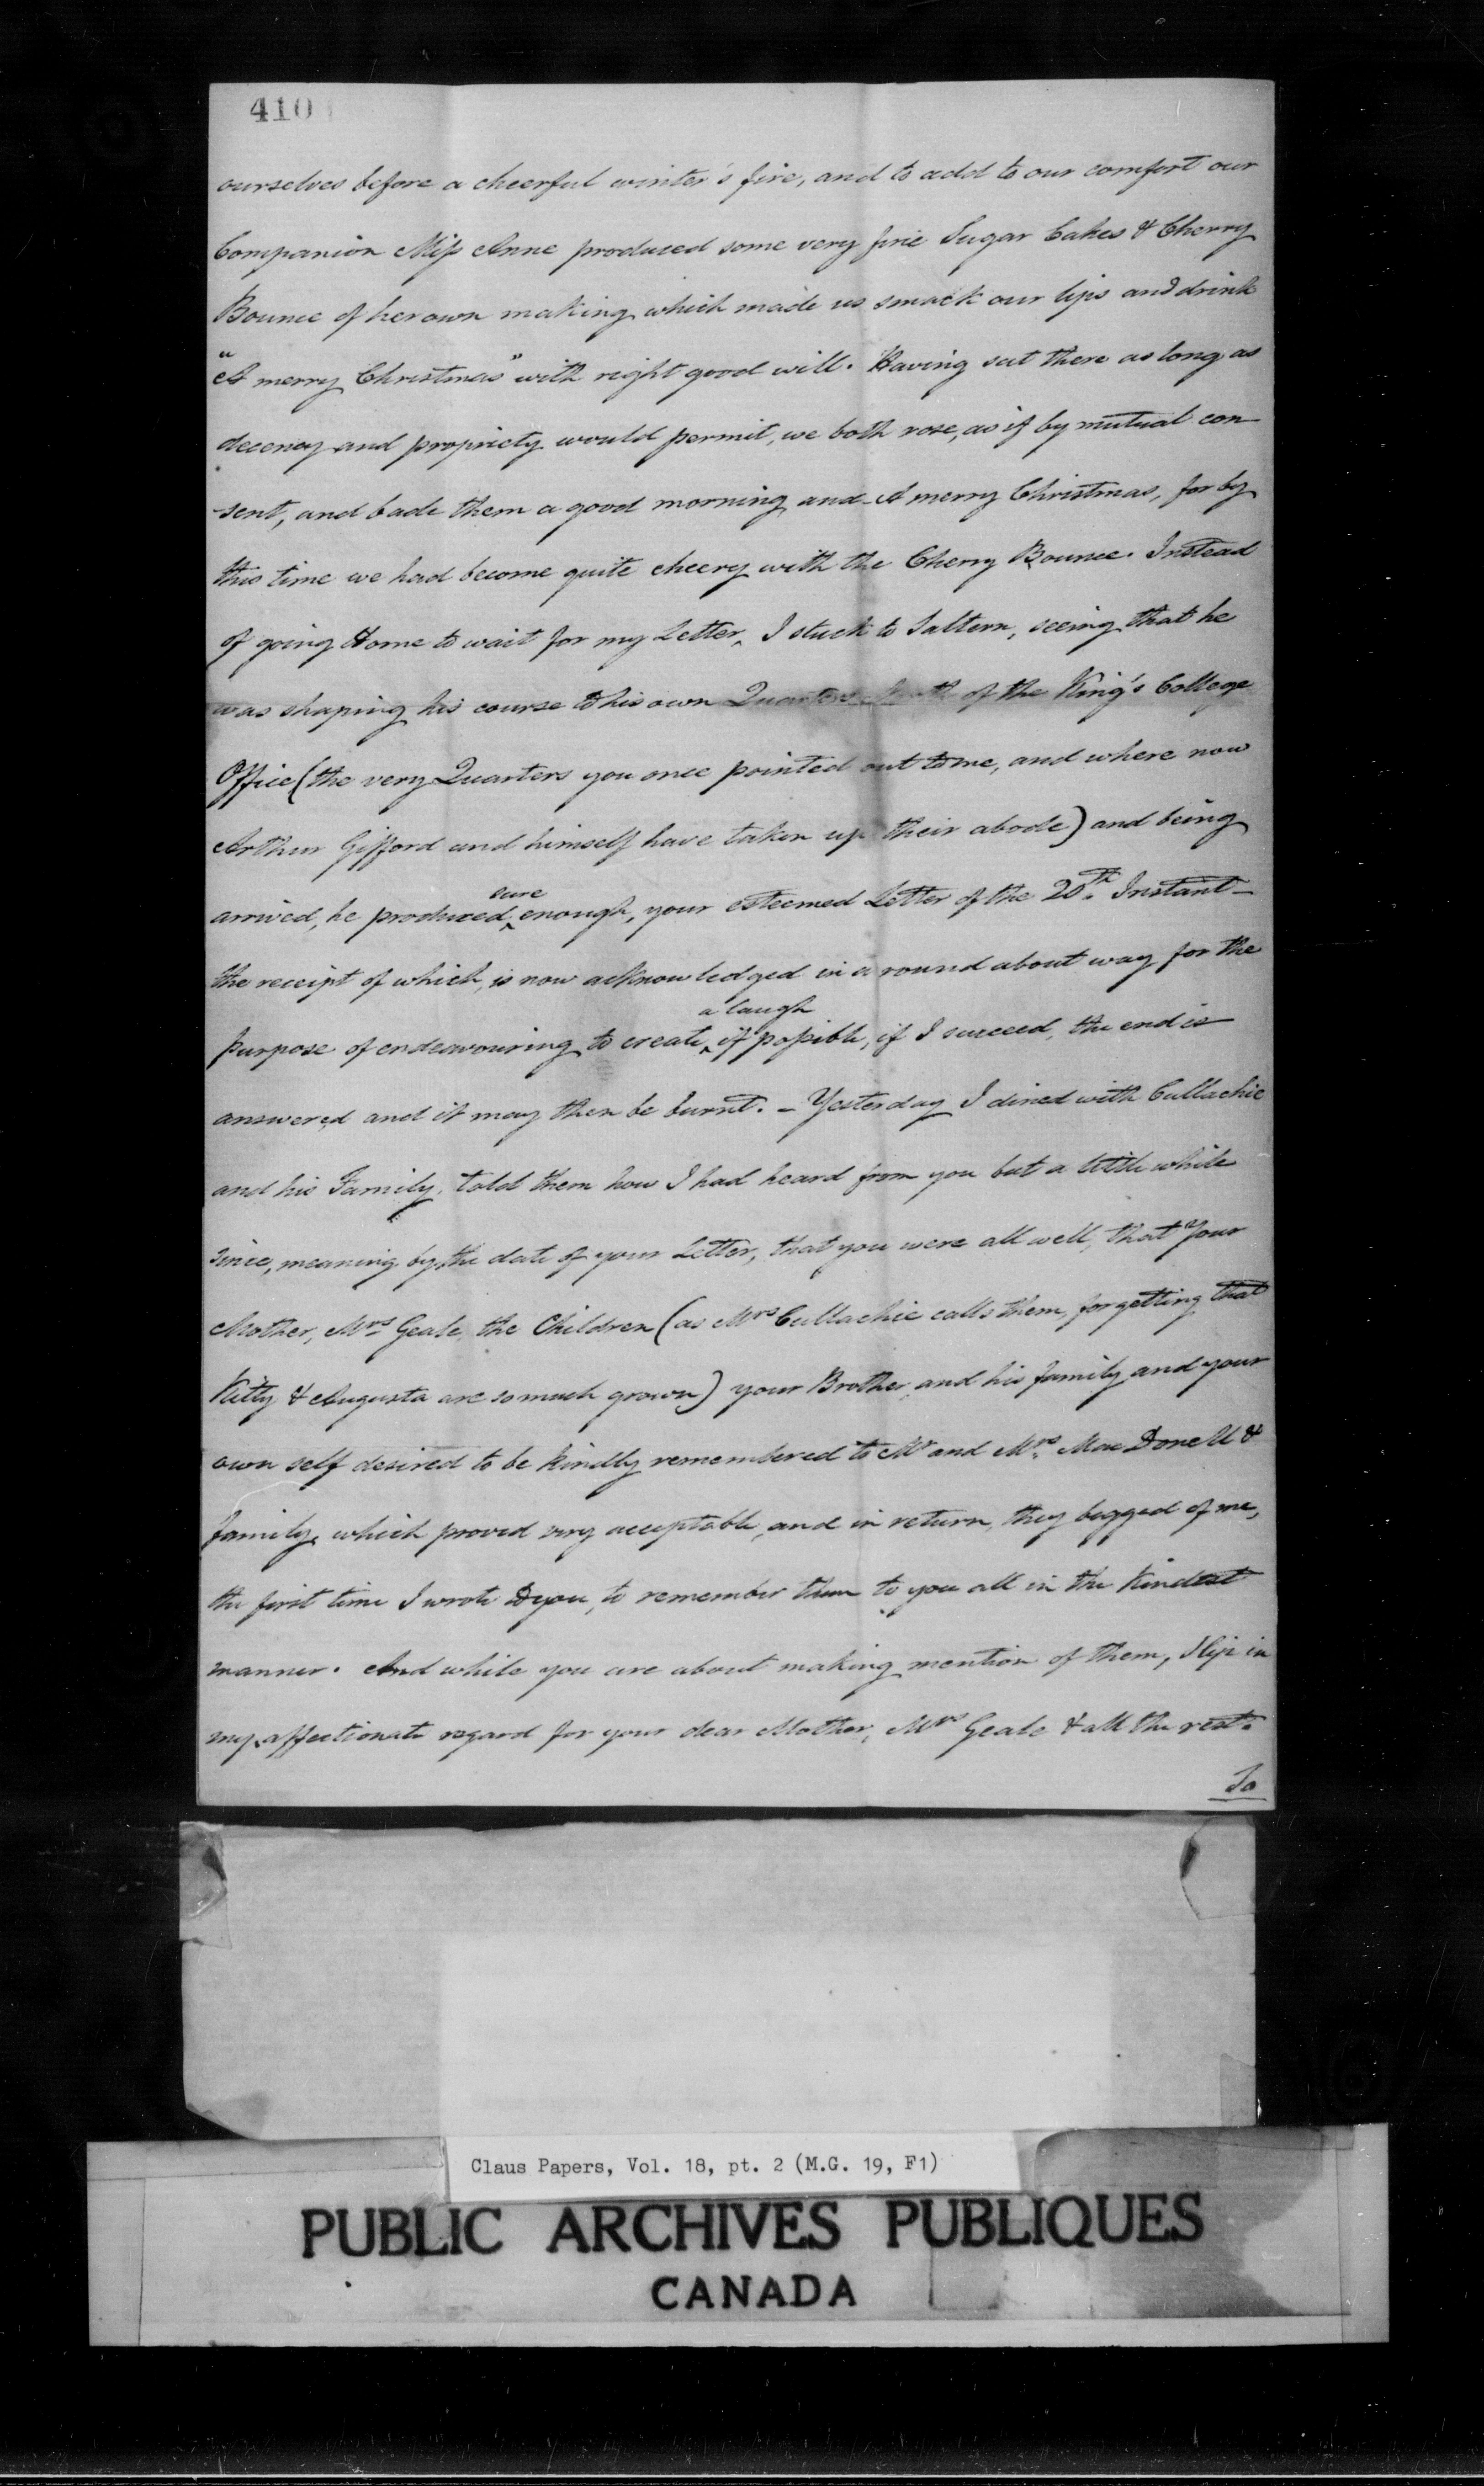 410
ourselves before a cheerful winter's fire, and to add to our comfort our
Companion Miss Anne produced some very fine Sugar Cakes & Cherry
Bounce of her own making which made us smack our lips and drink
"A merry Christmas" with right good will. Having sat there as long as
decency and propriety would permit, we both rose, as if by mutual con
sent, and bade them a good morning and A merry Christmas, for by
this time we had become quite cheery with the Cherry Bounce. Instead
of going Home to wait for my Letter, I stuck to Saltern, seeing that he
was shaping his course to his own Quarters of the King's College
Office (the very Quarters you once pointed out to me, and where now
Arthur Gifford and himself have taken up their abode) and being
sure
arrived, he produced ‸ enough, your esteemed Letter of the 20th. Instant—
the receipt of which, is now acknowledged in a round about way for the
a laugh
purpose of endeavouring to create ‸ if possible, if I succeed, the end is
answered and it may then be burnt. – Yesterday I dined with Cullachie
and his Family, told them how I had heard from you but a little while
since, meaning by the date of your Letter, that you were all well, that Your
Mother, Mrs Geale, the Children (as Mrs Cullachie calls them, forgetting that
Kitty & Augusta are so much grown) your Brother and his family and your
own self desired to be kindly remembered to Mr and Mrs. Mac Donell &
family, which proved very acceptable, and in return, they begged of me,
the first time I wrote to you, to remember them to you all in the kindest
manner. And while you are about making mention of them, slip in
my affectionate regard for your dear Mother, Mrs Geale & all the rest.
To
Claus Papers, Vol. 18, pt. 2 (M.G. 19, F1)
PUBLIC ARCHIVES PUBLIQUES
CANADA